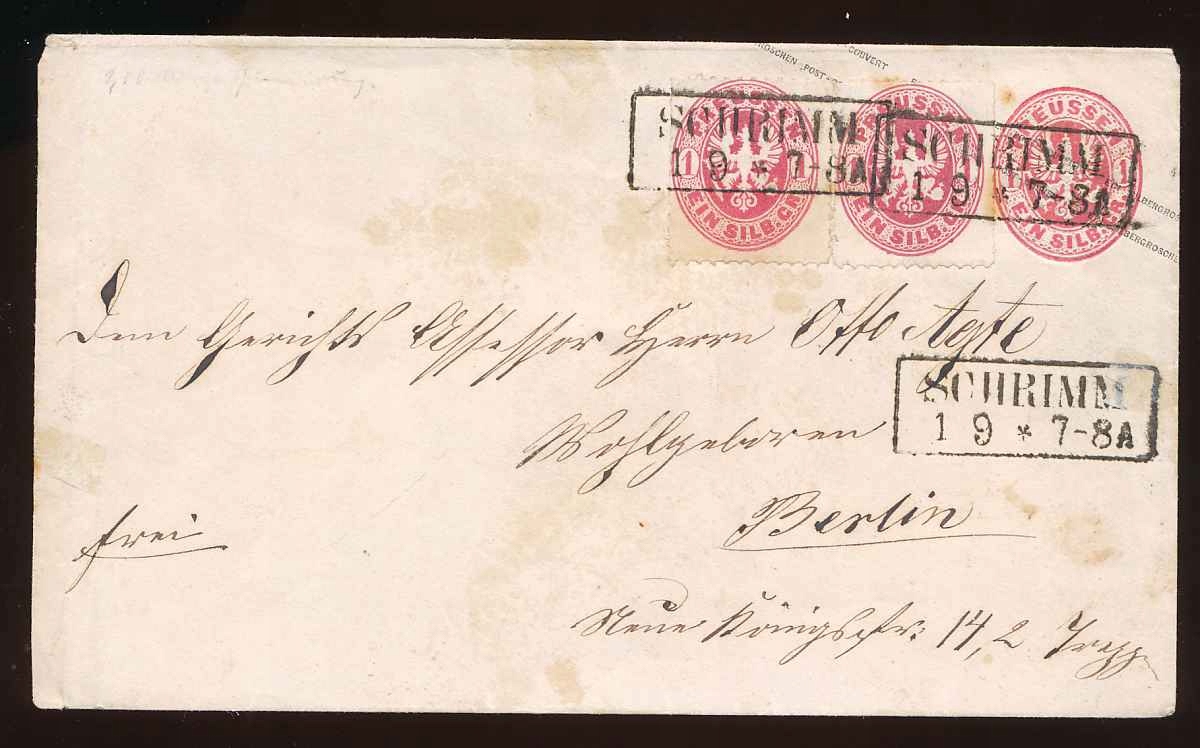 GROSCHEN POST
COUVERT
PREUSSEN
1 1
EIN SILB. GR.
PREUSSEN
EIN SILB. GR.
PREUSSEN
1 1
EIN SILB. GR.
SILBERGROS
BERGROSCHEN
SCHRIMM
1 9 * 7-8A
SCHRIMM
1 9 * 7-8A
Dem Gerichts Assessor Herrn Otto Agte
SCHRIMM
1 9 * 7-8A
Wohlgeboren
Berlin
frei
Neue Königsstr: 14, 2 Trepp